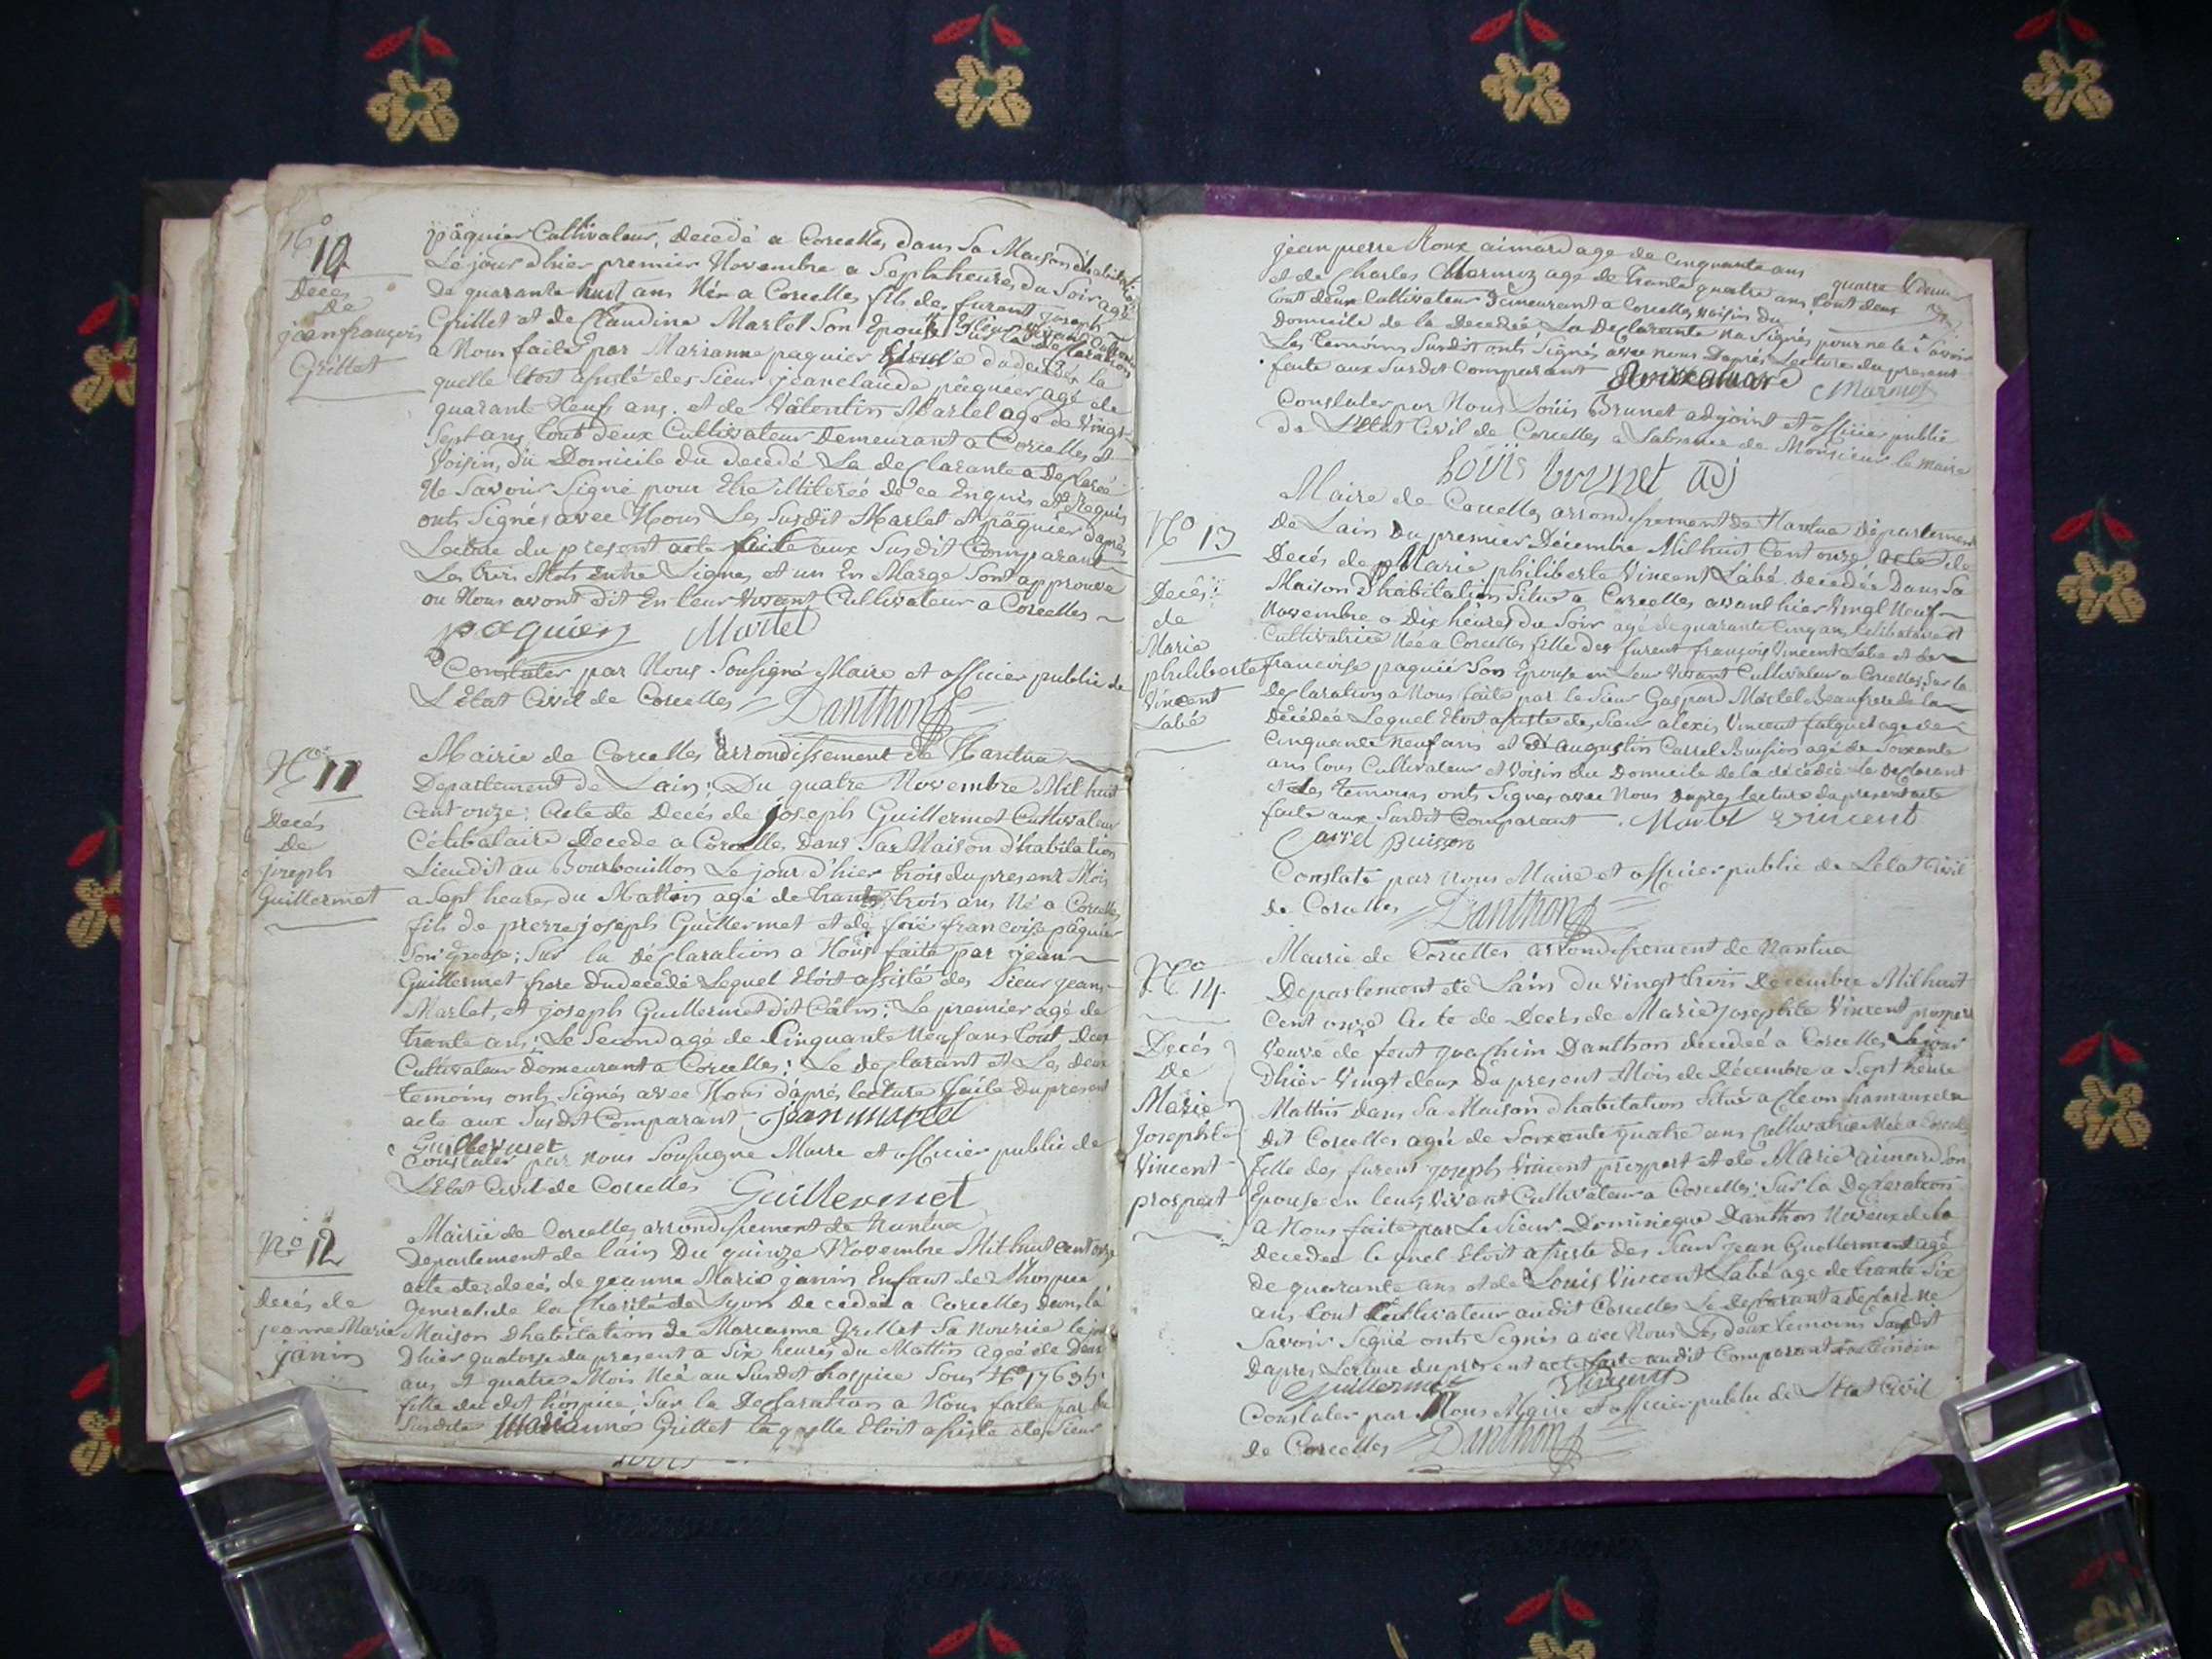 No 10
Decés
de
jeanfrançois
Grillet
pâquier Cultivateur, decedé a Corcelles dans Sa Maison d'habitation
Le jour d'hier premier Novembre a Sept heures du Soir agé
De quarante huit ans Né a Corcelles fils des furent joseph
Grillet et de Claudine Martel Son Epouse
a Nous faite par Marianne paquier Veuve du decedé la
quelle Etoit assisté des Sieur jeanclaude pâquier agé de
quarante Neuf ans. et de Valentin Martel agé de Vingt
Sept ans tout deux Cultivateur Demeurant a Corcelles et
Voisin, du Domicile du decedé La declarante a Declaré
Ne Savoir Signé pour Etre illiterée de ce Enquis et Requis
onts Signés avec Nous Les Susdit Martel et pâquier d'aprés
Lecture du present acte faite aux Susdit Comparant
Les trois Mots Entre Lignes et un En Marge Sont approuvé
ou Nous avont dit En leur vivant Cultivateur a Corcelles
paquier Martel
Constater par Nous Sousigné Maire et officier public de
L'Etat Civil de Corcelles Danthon
No 11
Decés
De
joseph
Guillermet
Mairie de Corcelles arrondissement de Nantua
Departement de Lain; Du quatre Novembre Mil huit
Cent onze; Acte de Decés de joseph Guillermet Cultivateur
Célibataire Decedé a Corcelles Dans Sa Maison d'habitation
Lieudit au Bourbouillon Le jour d'hier trois du present Mois
a Sept heures du Mattin agé de trante trois ans Né a Corcelles
fils de pierre joseph Guillermet et de françoise pâquier
Son Epouse; Sur la Déclaration a Nous faite par jean
Guillermet frere du decedé Lequel Etoit assisté des Sieur jean
Martel, et joseph Guillermet dit Câlin; Le premier agé de
trante ans; Le Second agé de Cinquante Neuf ans tout deux
Cultivateur Demeurant a Corcelles; Le declarant et Les deux
temoins onts Signés avec Nous d'aprés lecture faite du present
acte aux Susdit Comparant. jean martel
Guillermet
Constater par nous Sousigne Maire et officier public de
L'Etat Civil de Corcelles Guillermet
No 12
decés de
jeanne Marie
janin
Mairie de Corcelles arrondissement de Nantua
Departement de l'ain Du quinze Novembre Mil huit Cent onze
acte de decés de jeanne Marie janin Enfant de l'hospice
General de la Charité de Lyon decedée a Corcelles dans la
Maison d'habitation de Marianne Grillet Sa nourice le jour
D'hier quatorze du present a Six heures du Mattin agée de Deux
ans Et quatre Mois Née au Susdit hospice Sous No 17635
fille du dit hospice; Sur la Declaration a Nous faite par la
Susdite Marianne Grillet laquelle Etoit assisté des Sieur
jean pierre Roux aimard age de Cinquante ans
et de Charles Mermoz age de trante quatre ans tout deux
tout deux Cultivateur Demeurant a Corcelles voisin du
Domicile de la Decedée La Declarante Na Signés pour ne le Savoir
Les temoins Susdit onts Signés avec nous D'aprés Lecture du present
faite aux Susdit Comparant Rouxaimard Marmoz
Constater par Nous Louis Brunet adjoint et officier public
de L'Etat Civil de Corcelles a Labsence de Monsieur le Maire
Louis brunet adj
No 13
Decés
de
Marie
philiberte
Vincent
Labé
Maire de Corcelles arrondissement de Nantua Département
De Lain Du premier Décembre Mil huit Cent onze acte de
Decés de Marie philiberte Vincent Labé Decedée Dans Sa
Maison D'habitation Situé a Corcelles avant hier Vingt Neuf
Novembre a Dix héures du Soir agé de quarante Cinq ans Celibataire et
Cultivatrice Née a Corcelles fille des furent françois Vincent Labé et de
francoise paquié Son Epouse en Leur Vivant Cultivateur a Corcelles, Sur la
declaration a Nous faite par le Sieur Gaspard Martel Beaufrere de la
Décédée Lequel Etoit assisté des Sieur alexis Vincent falquet age de
Cinquante Neuf ans et d'augustin Carrel Buisson agé de Soixante
ans tous Cultivateur et voisin du Domicile de la décédée le Declarant
et Les temoins onts Signes avec Nous d'apres lecture du present acte
faite aux Susdit Comparant. Martel Vincent
Carrel buisson
Constaté par nous Maire et officier public de L'etat Civil
de Corcelles Danthon
No 14
Decés
De
Marie
Josephte
Vincent
prospert
Mairie de Corcelles arrondissement de Nantua
Departement de Lain du Vingt trois Decembre Mil huit
Cent onze Acte de Decés de Marie Josephte Vincent prospert
Veuve de feut joachim Danthon decedée a Corcelles Le jour
D'hier Vingt deux du present Mois de Décembre a Sept heure
Mattin dans Sa Maison d'habitation Situé a Cleon hamaux du
dit Corcelles agée de Soixante quatre ans Cultivatrice Née a Corcelles
fille des furent joseph Vincent prospert et de Marie aimard Son
Epouse en leur Vivant Cultivateur a Corcelles; Sur la Declaration
a Nous faite par Le Sieur Dominique Danthon Neveux de la
decedée lequel Etoit assisté des Sieur jean Guillermet agé
de quarante ans et de Louis Vincent Labé age de trante Six
ans tout Cultivateur audit Corcelles Le declarant a declaré ne
Savoir Signé onts Signés avec Nous Les deux temoins Susdit
Dapres Lecture du present acte faite audit Comparant et temoin
Guillermet Vincent
Constater par Nous Maire et officier public de L'Etat Civil
de Corcelles Danthon